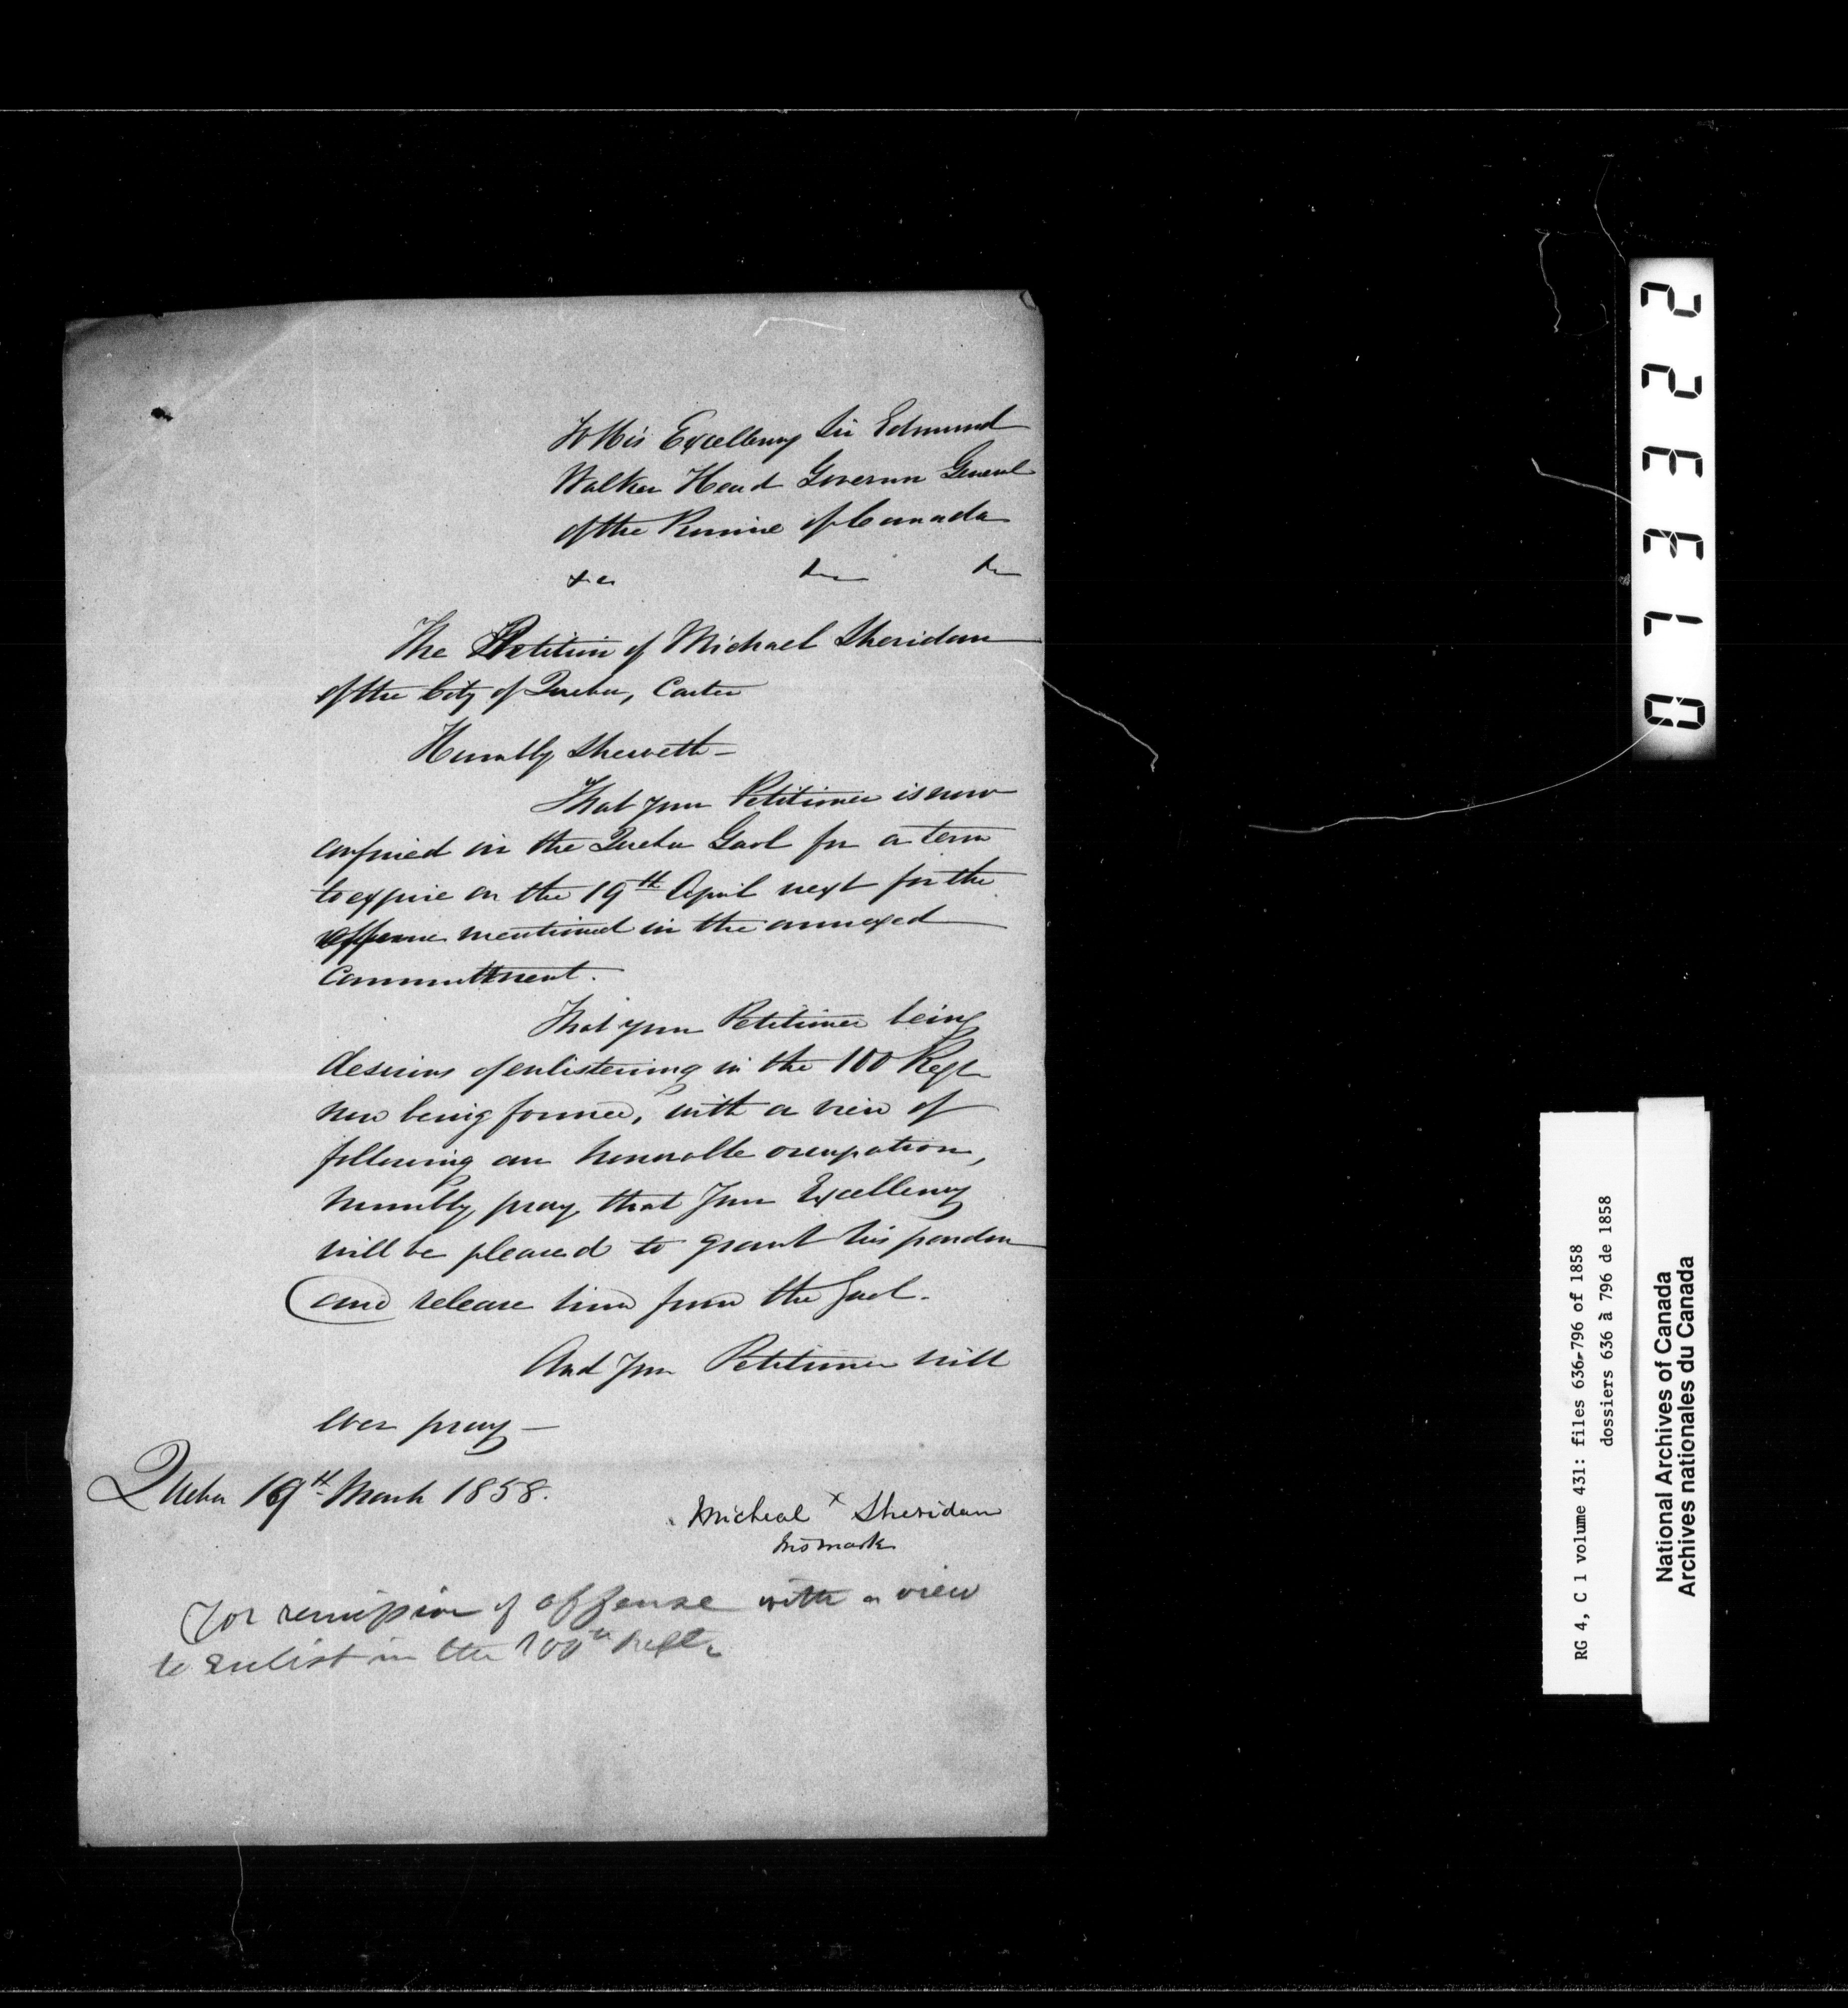 To His Excellency Sir Edmund
Walker Head Governor General
of the Province of Canada
&c &c &c
The Petition of Michael Sheridan
of the City of Quebec, Carter
Humbly Sheweth—
That your Petitioner is now
confined in the Quebec Gaol for a term
to expire on the 19th April next for the
offence mentioned in the annexed
Committment.
That your Petitioner being
desirous of enlistering in the 100 Regt
now being formed, with a view of
following an honorable occupation,
humbly pray that Your Excellency
will be pleased to grant his pardon
and release him from the Gaol.
And Your Petitioner will
ever pray—
Quebec 19th March 1858.
Micheal x Sheridan
his mark
For remission of offense with a view
to Enlist in the 100th Regt
022337 10
RG 4, C 1 volume 431: files 636-796 of 1858
dossiers 636 à 796 de 1858
National Archives of Canada
Archives nationales du Canada